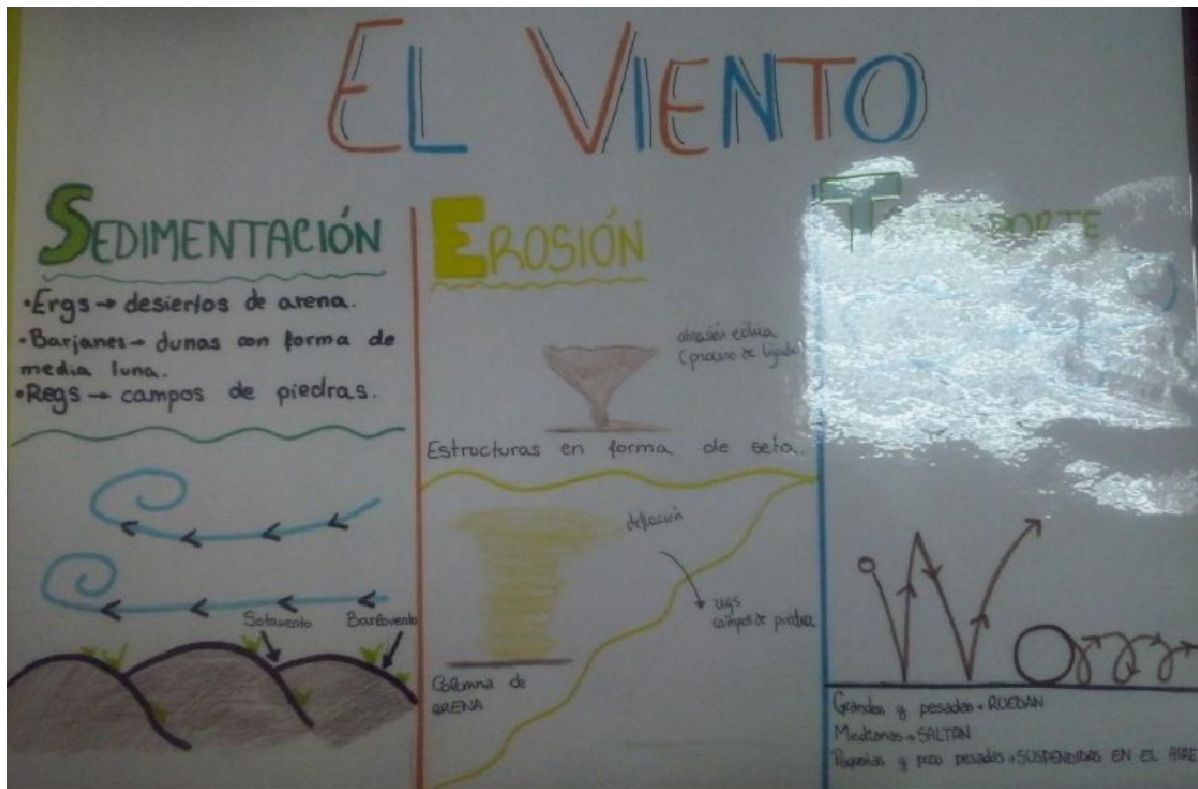 EL VIENTO
SEDIMENTACIÓN
•Ergs → desiertos de arena.
•Barjanes → dunas con forma de
media luna.
•Regs → campos de piedras.
Sotavento
Barlovento
EROSIÓN
abrasión eólica
(proceso de
Estructuras en forma de seta.
deflación
campos de piedra
Columna de
ARENA
TRANSPORTE
Grandes y pesadas → RUEDAN
Medianas → SALTAN
Pequeñas y poco pesadas → SUSPENDIDAS EN EL AIRE